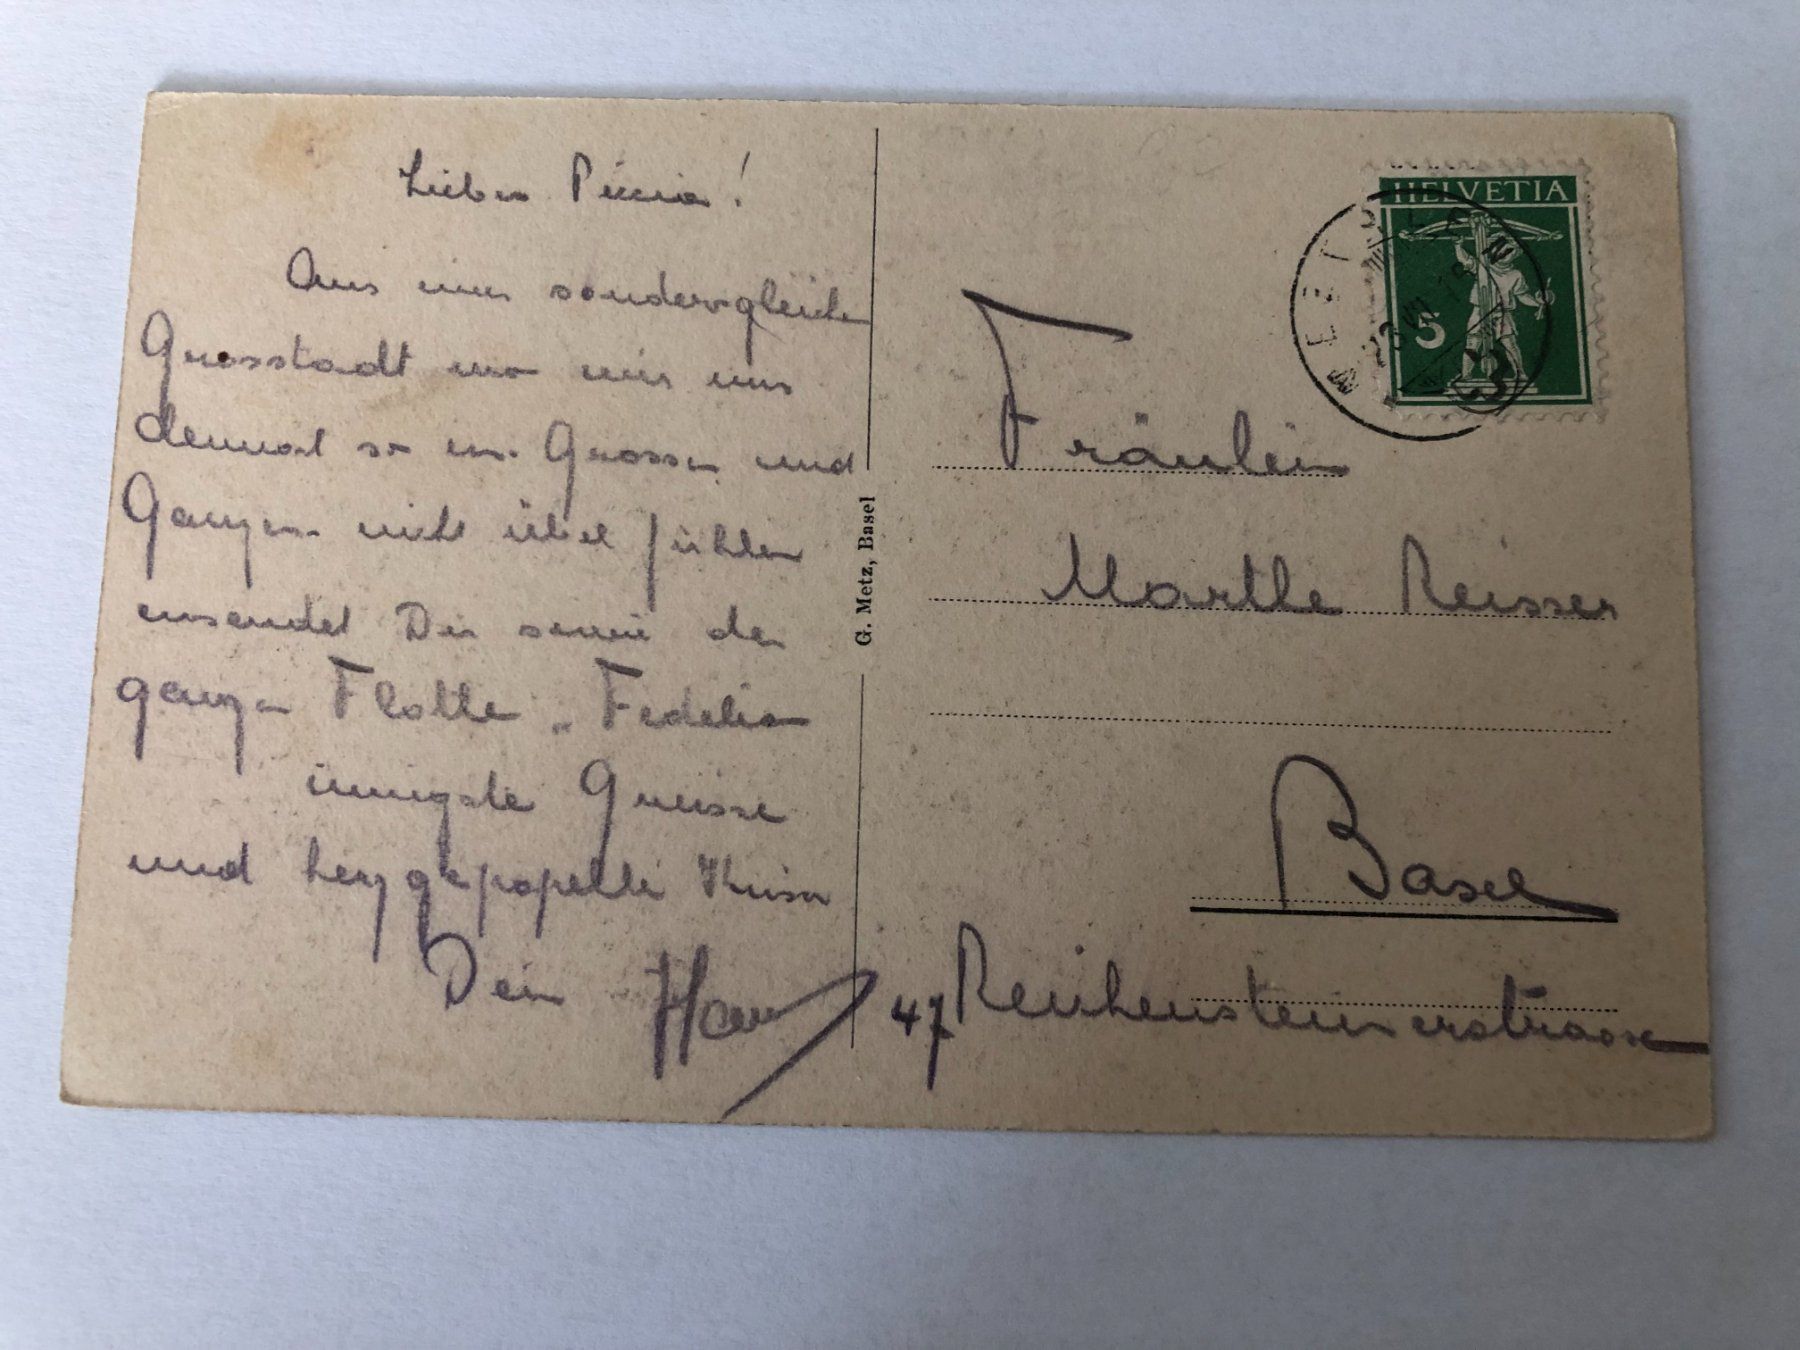 Lieber
Aus einer sondergleichen
Grosstadt wo wir uns
dennoch so im Grossen und
Ganzen nicht übel fühlen
ensendet Dir sowie der
ganzen Flotte - Fedelia
innigste Grüsse
und herzgepoppelte Küsse
Dein Hans
G. Metz, Basel
HELVETIA
5
Fräulein
Marthe Reisser
Basel
47 Reichensteinerstrasse